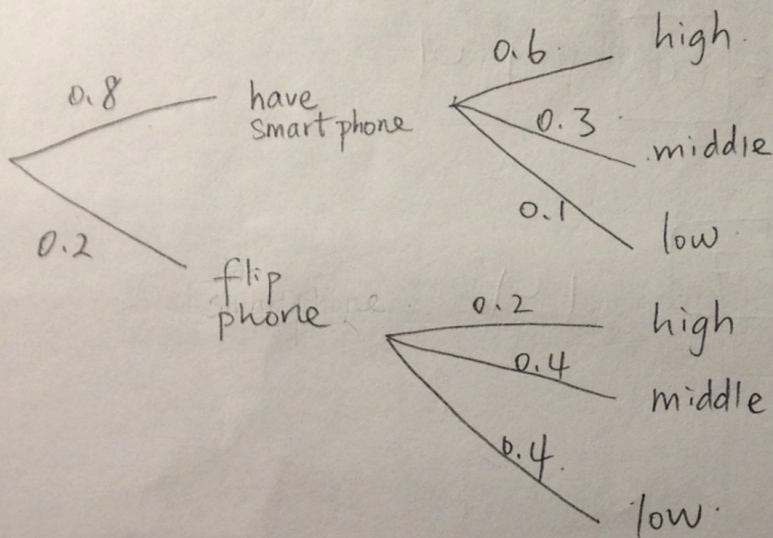 0.8
have
smart phone
0.6
high
0.3
middle
0.1
low
0.2
flip
phone
0.2
high
0.4
middle
0.4
low